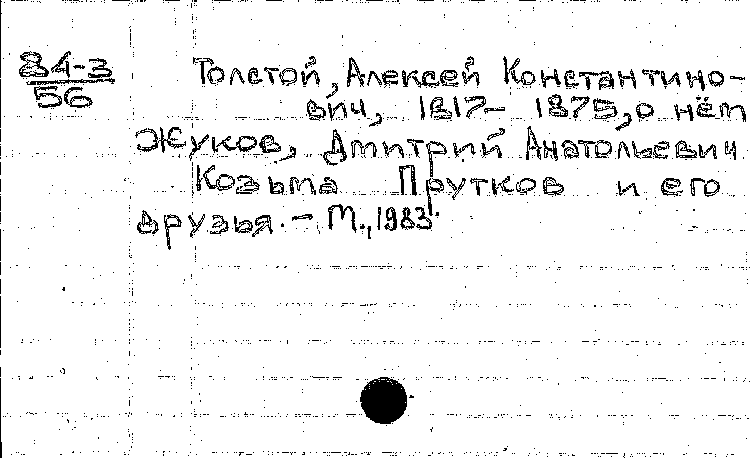 84-3
56
Толстой, Алексей Константино-
вич, 1817- 1875, о нём
Жуков, Дмитрий Анатольевич
Козьма Прутков и его
друзья. - М., 1983.